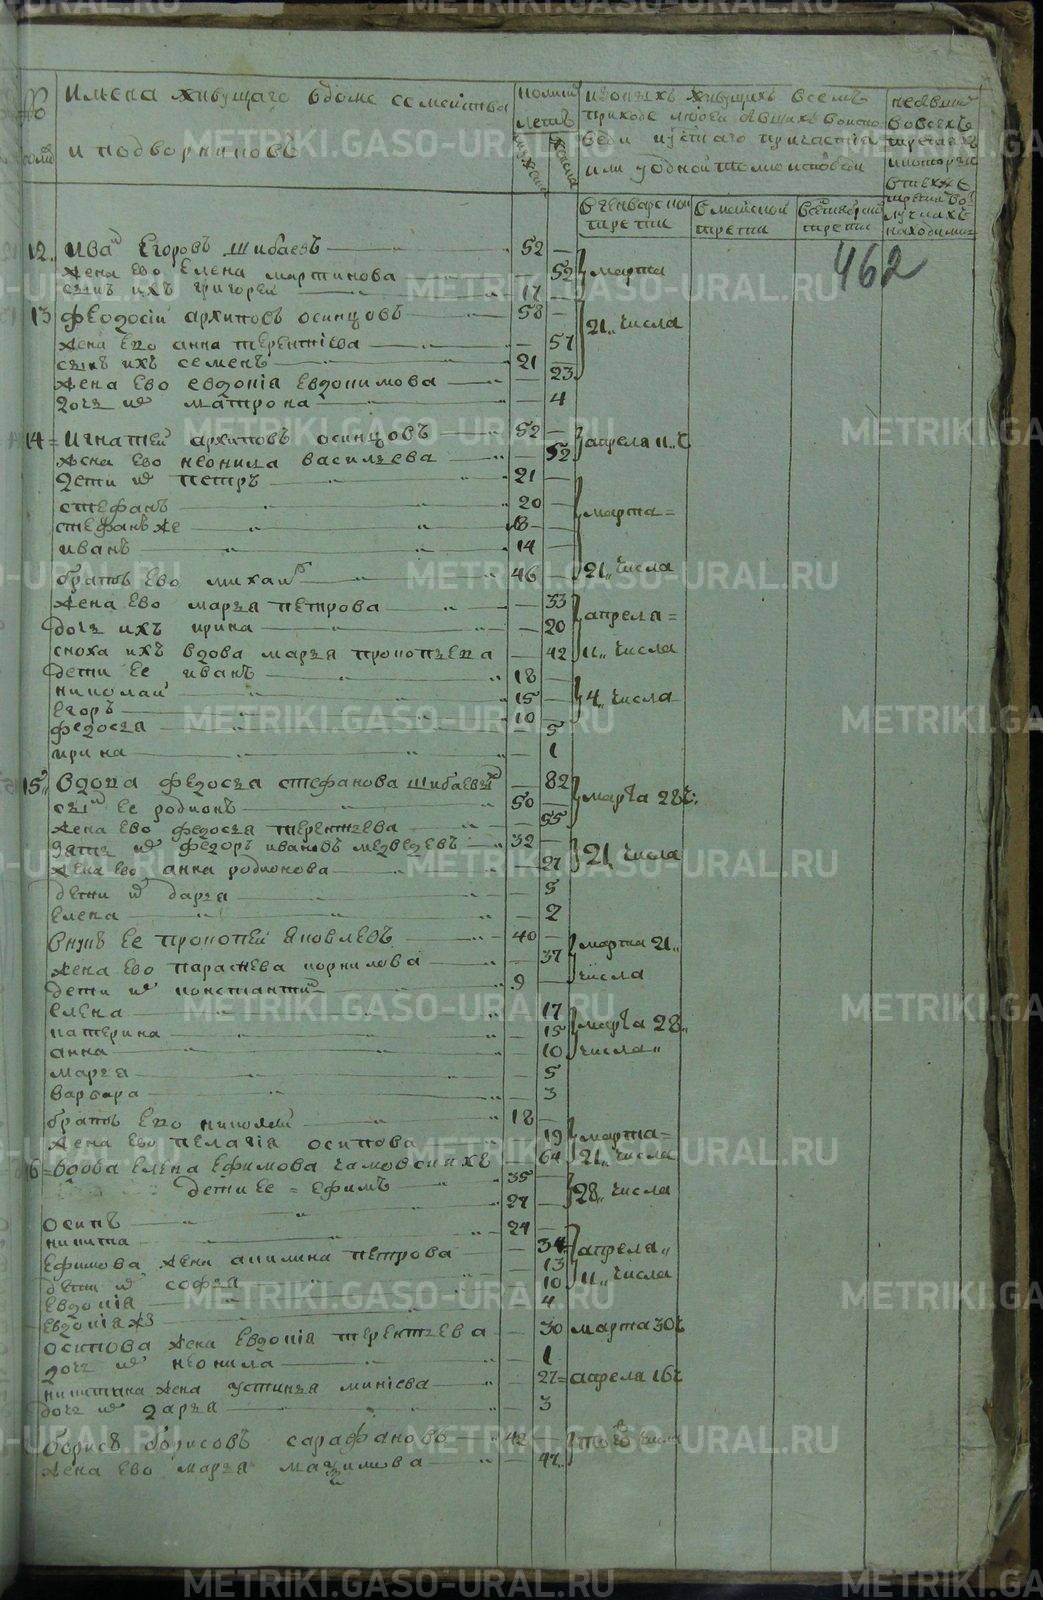 имена живущаго в доме семейства
и подворниковъ
№ домо
полних летъ
мужеска
женска
и о онихъ живущихъ в семъ
приходе людей бывшихъ в испо
веди и у стаго причастия
или у одной токмо исповеди
в генварской трети
в майской трети
в сентябрской трети
462
12 Иванъ Егоровъ Шибаевъ 52 —
жена ево Елена Мартинова — 52 } марта
сынъ ихъ Григорей 17 —
13 Феодосий Архиповъ Осинцовъ 58 — 21 числа
жена его Анна Терентиева — 57
сынъ ихъ Семенъ 21 —
жена ево Евдокия Евдокимова — 23
дочь их Матрона — 4
14 Игнатей Архиповъ Осинцовъ 52 — апреля 11 ч
жена ево Неонила Василева — 52
дети их Петръ 21 —
Стефанъ 20 — марта
Стефанъ же 18 —
Иванъ 14 —
братъ ево Михаил 46 — 21 числа
жена ево Марья Петрова — 33 апреля
дочь ихъ Ирина — 20
сноха ихъ вдова Марья Прокопьева — 42 11 числа
дети ее Иванъ 18 —
Николай 15 — 4 числа
Егоръ 10 —
Федосья — 5
Ирина — 1
15 Вдова Федосья Стефанова Шибаевых — 82 марта 28 ч:
сын ее Родионъ 50 —
жена ево Федосья Терентьева — 55
зять их Федоръ Ивановъ Медведевъ 32 — 21 числа
жена ево Анна Родионова — 27
дети их Дарья — 5
Елена — 2
внукъ ее Прокопей Яковлевъ 40 — марта 21
жена ево Параскева Корнилова — 37 числа
дети их Константин 9 —
Елена — 17 марта 28
Катерина — 15
Анна — 10 числа
Марья — 5
Варвара — 3
братъ его Николай 18 —
жена ево Пелагия Осипова — 19 марта
16 Вдова Елена Ефимова — 64 21 числа
дети ее Ефимъ 35 — 28 числа
Осипъ 27 —
Никита 24 —
Ефимова жена Акилина Петрова — 34 апреля
дети их Софья — 13 11 числа
Евдокия — 10
Евдокия жъ — 4
Осипова жена Евдокия Терентьева — 30 марта 30 ч
дочь их Неонила — 1
Никитина жена Устинья Миниева — 27 апреля 16 ч
дочь их Дарья — 3
Борисъ Борисовъ Сарафановъ 42 — числа
жена ево Марья — 47